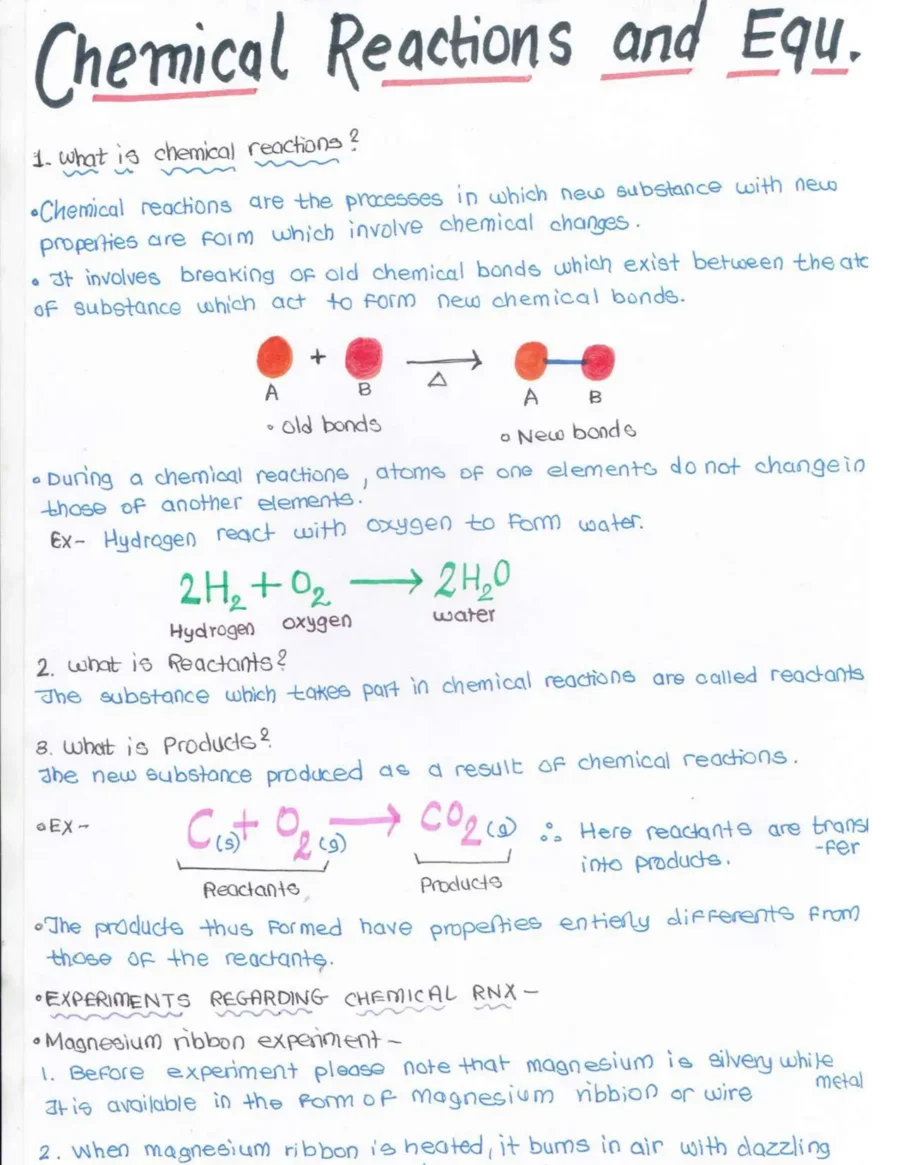 Chemical Reactions and Equ.
1. What is chemical reactions?
•Chemical reactions are the processes in which new substance with new
properties are form which involve chemical changes.
• It involves breaking of old chemical bonds which exist between the ato
of substance which act to form new chemical bonds.
+ Δ
A B A B
• Old bonds • New bonds
• During a chemical reactions, atoms of one elements do not change in
those of another elements.
Ex- Hydrogen react with oxygen to form water.
2H₂ + O₂ → 2H₂O
Hydrogen oxygen water
2. What is Reactants?
The substance which takes part in chemical reactions are called reactants
3. What is Products?
The new substance produced as a result of chemical reactions.
•EX- C(s) + O₂(g) → CO₂(g) ∴ Here reactants are transf
-fer
into products.
Reactants Products
•The products thus formed have properties entierly differents from
those of the reactants.
•EXPERIMENTS REGARDING CHEMICAL RNX-
•Magnesium ribbon experiment-
1. Before experiment please note that magnesium is silvery while
metal
It is available in the form of magnesium ribbion or wire
2. When magnesium ribbon is heated, it burns in air with dazzling